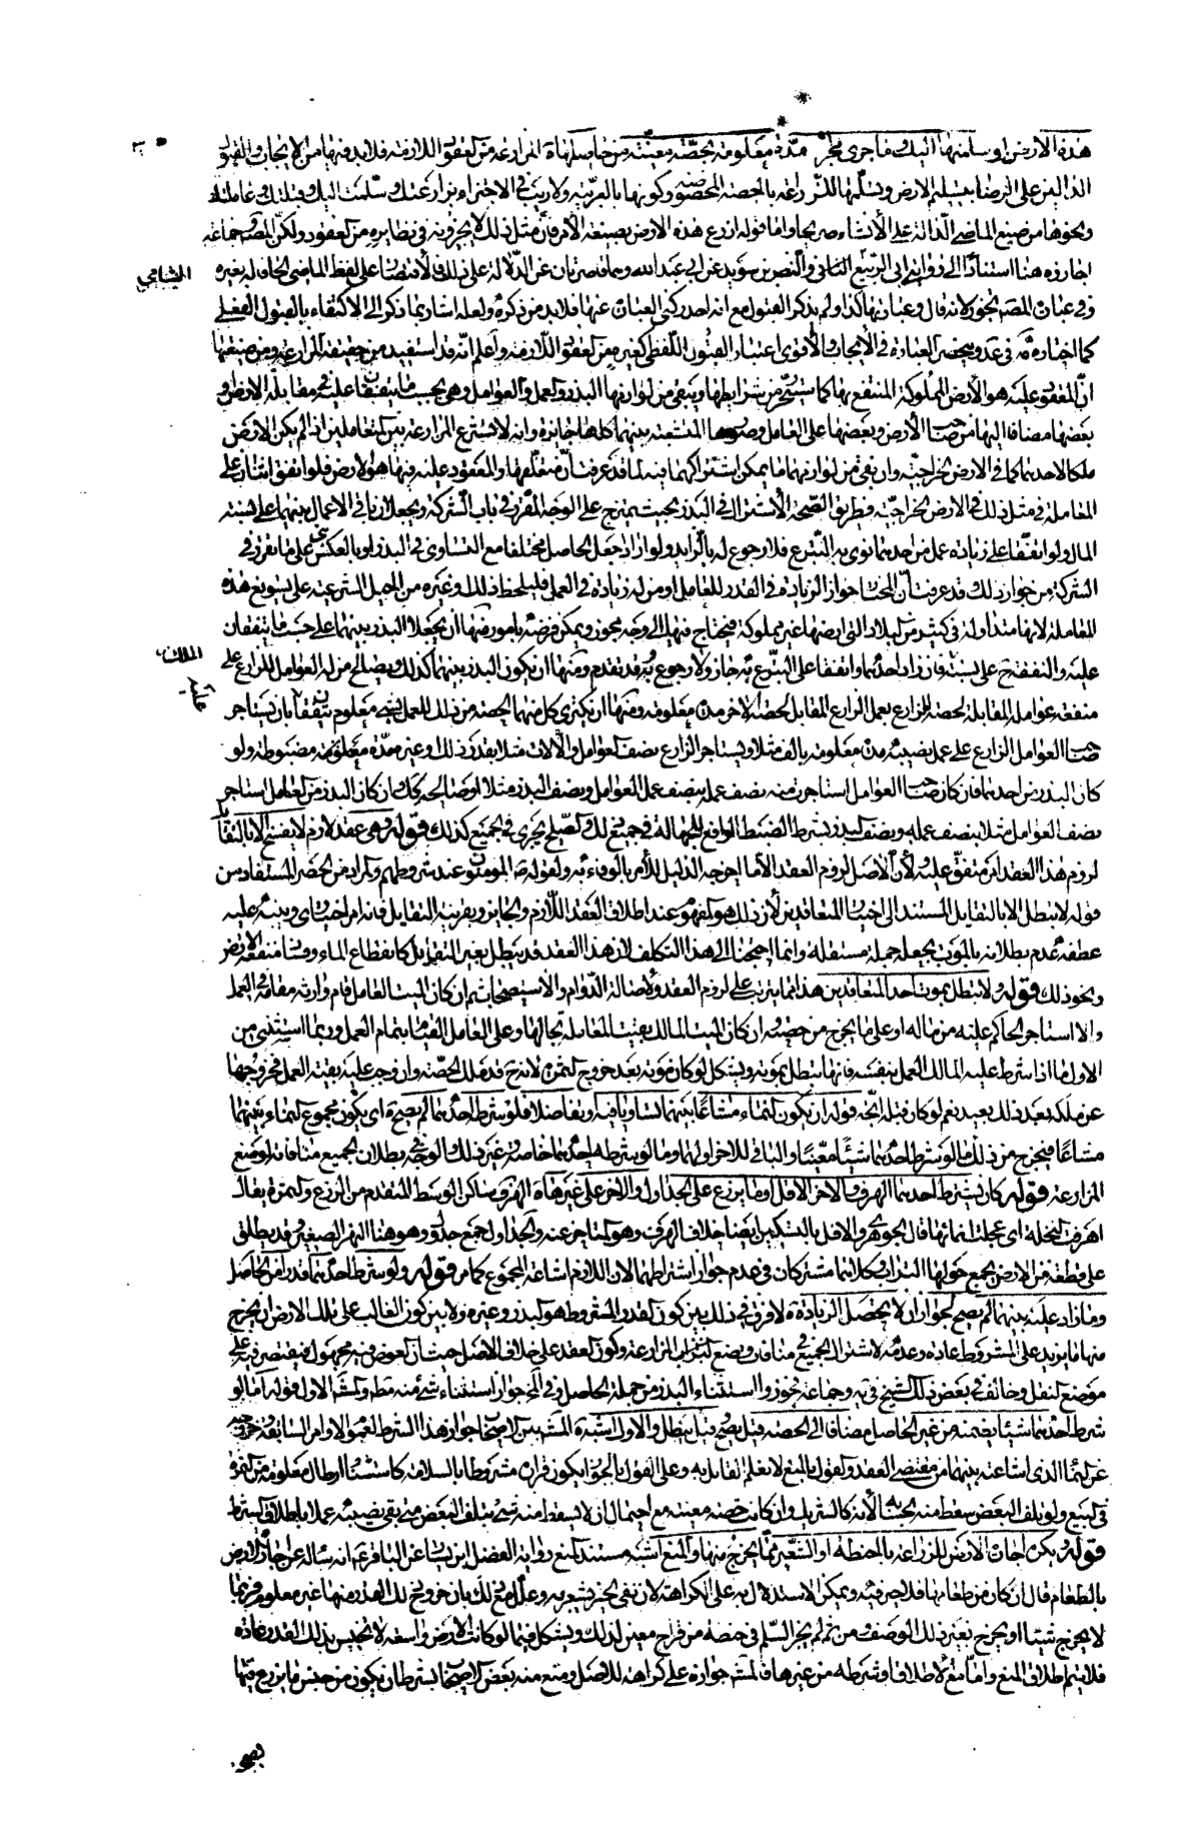 هذه الارض او سلمتها اليك وما جرى مجراه مدة معلومة بحصة معينة من حاصلها المزارعة من العقود اللازمة فلابد فيها من الايجاب والقبول
الدالين على الرضا بتسليم الارض وتسلمها للزراعة بالحصة المخصوصة وكونها بالعربية ولا ريب في الاجتزاء بزارعتك وسلمت اليك وقبلتك وعاملتك
ونحوها من صيغ الماضي الدالة على الانشاء صريحا واما قوله ازرع هذه الارض بصيغة الامر فان مثل ذلك لا يجزونه في نظايره من العقود ولكن المصنف وجماعة
اجازوه هنا استنادا الى رواية ابي الربيع الشامي والنضر بن سويد عن ابي عبد الله وهما قاصرتان عن الدلالة على ذلك فالاقتصار على لفظ الماضي الحاقا له بغيره
وفي عبارة المصنف تجوز لانه قال وعبارتها كذا ولم يذكر القبول مع انه احد ركني العبارة عنها فلابد من ذكره ولعله اشار بما ذكر الى الاكتفاء بالقبول الفعلي
كما اختاره في عد ويخص العبارة في الايجاب والاقوى اعتبار القبول اللفظي كغيره من العقود اللازمة واعلم انه قد استفيد من حقيقة المزارعة ومن صيغتها
ان المعقود عليه هو الارض المملوكة المنتفع بها كما سيتحرر من شرايطها ويبقى من لوازمها البذر والعمل والعوامل وهي بحسب ما يتفقان عليه في مقابلة الارض او
بعضها مضافا اليها من صاحب الارض وبعضها على العامل وصورها المتشعبة بينهما كلها جائزة وانه لا تشرع المزارعة بين المتعاملين اذا لم يكن الارض
ملكا لاحدهما كما في الارض الخراجية وان بقي من لوازمها ما يمكن اشتراكهما فيه لما قد عرفت ان متعلقها والمعقود عليه فيها هو الارض فلو اتفق اثنان على
المعاملة في مثل ذلك في الارض الخراجية فطريق الصحة الاشتراك في البذر بحيث يمتزج على الوجه المقرر في باب الشركة ويجعل الزاد في الاعمال بينهما على نسبة
المال ولو اتفقا على زيادة عمل من احدهما نوى به التبرع فلا رجوع له بالزايد ولو اراد جعل الحاصل مختلفا مع التساوي في البذر او بالعكس بني على ما تقرر في
الشركة من جواز ذلك وقد عرفت ان المختار جواز الزيادة في القدر للعامل او من له زيادة في العمل فليلحظ ذلك وغيره من الحيل الشرعية على تسويغ هذه
المعاملة لانها متداولة في كثير من البلاد التي ارضها غير مملوكة فيحتاج فيها الى وجه مجوز ويمكن فرضه بامور منها ان يجعلا البذر بينهما على حسب ما يتفقان
عليه والنفقة على نسبته فان زاد احدهما واتفقا على التبرع به جاز ولا رجوع به كما تقدم ومنها ان يكون البذر بينهما كذلك ويصالح من له العوامل الزارع على
منفعة عوامله المقابلة لحصة الزارع بعمل الزارع المقابل لحصة الاخر مدة معلومة ومنها ان يكتري كل منهما الحصة من ذلك للعمل بشيء معلوم يتفقا بان يستاجر
صاحب العوامل الزارع على عمل نصيبه مدة معلومة بالف مثلا ويستاجر الزارع نصف العوامل والالات مثلا بقدر ذلك وغيره مدة معلومة مضبوطة ولو
كان البذر من احدهما فان كان صاحب العوامل استاجره منه نصف عمله بنصف عمل العوامل ونصف البذر مثلا او صالحه كذلك وان كان البذر من العامل استاجر
نصف العوامل مثلا بنصف عمله ونصف البذر بشرط الضبط الرافع للجهالة في جميع ذلك والصلح يجري في الجميع كذلك قوله وهي عقد لازم لا ينفسخ الا بالتقايل
لزوم هذا العقد امر متفق عليه ولان الاصل لزوم العقد الا ما اخرجه الدليل للامر بالوفاء به ولقوله ص المؤمنون عند شروطهم والمراد من الحصر المستفاد من
قوله لا تبطل الا بالتقايل المستند الى اختيار المتعاقدين لان ذلك هو المفهوم عند اطلاق العقد اللازم والجايز وبقرينة التقايل فانه امر اختياري وينبه عليه
عطفه عدم بطلانه بالموت بجعله جملة مستقلة وانما احتجنا الى هذا التكلف لان هذا العقد قد يبطل بغير التقايل كانقطاع الماء وفساد منفعة الارض
ونحو ذلك قوله ولا تبطل بموت احد المتعاقدين هذا مما يترتب على لزوم العقد ولاصالة الدوام والاستصحاب ثم ان كان الميت العامل قام وارثه مقامه في العمل
والا استاجر الحاكم عليه من ماله او على ما يخرج من حصته وان كان الميت المالك بقيت المعاملة بحالها وعلى العامل القيام بتمام العمل وربما استثني من
الاول ما اذا شرط عليه المالك العمل بنفسه فانها تبطل بموته ويشكل لو كان موته بعد خروج الثمرة لانه ح قد ملك الحصة وان وجب عليه بقية العمل فخروجها
عن ملكه بعد ذلك بعيد نعم لو كان قبله اتجه قوله ان يكون النماء مشاعا بينهما تساويا فيه او تفاضلا فلو شرط احدهما لم يصح اي يكون مجموع النماء بينهما
مشاعا فيخرج من ذلك ما لو شرط احدهما شيئا معينا والباقي للاخر او لهما وما لو شرطه احدهما خاصة وغير ذلك والوجه في بطلان الجميع منافاته لوضع
المزارعة قوله كان يشترط احدهما الهرف والاخر الافل او ما يزرع على الجداول والاخر على غيرها الهرف ساكن الوسط المتقدم من الزرع والثمرة يقال
اهرفت النخلة اي عجلت اتمائها قال الجوهري والافل بالتسكين ايضا خلاف الهرف وهو المتاخر عنه والجداول جمع جدول وهو هنا النهر الصغير وقد يطلق
على قطعة من الارض يجمع حولها التراب وكلاهما مشتركان في عدم جواز اشتراطهما لان اللازم اشاعة المجموع كما مر قوله ولو شرط احدهما قدرا من الحاصل
وما زاد عليه بينهما لم يصح لجواز ان لا يحصل الزيادة لا فرق في ذلك بين كون القدر المشروط هو البذر وغيره ولا بين كون الغالب على تلك الارض ان يخرج
منها ما يزيد على المشروط عادة وعدمه لاشتراك الجميع في منافاة وضع المزارعة وكون العقد على خلاف الاصل حيث ان العوض فيه مجهول فيقتصر فيه على
موضع النقل وخالف في بعض ذلك الشيخ في يه وجماعة فجوزوا استثناء البذر من جملة الحاصل وفي المخ جواز استثناء شيء منه مطلقا والمشهور الاول قوله اما لو
شرط احدهما شيئا يضمنه من غير الحاصل مضافا الى الحصة قيل يصح وقيل يبطل والاول اشبه المشهور بين الاصحاب جواز هذا الشرط لعموم الاوامر السابقة وخروجه
عن النماء الذي اشاعته بينهما من مقتضى العقد والقول بالمنع لا نعلم القائل به وعلى القول بالجواز يكون قراره مشروطا بالسلامة كاستثناء ارطال معلومة من الثمرة
في البيع ولو تلف البعض سقط منه بحسابه لانه كالشريك وان كانت حصته معينة مع احتمال ان لا يسقط منه شيء بتلف البعض متى بقي نصيبه عملا باطلاق الشرط
قوله ويكره اجارة الارض للزراعة بالحنطة او الشعير مما يخرج منها والمنع اشبه مستند المنع رواية الفضيل بن يسار عن الباقر ع انه ساله عن اجارة الارض
بالطعام قال ان كان من طعامها فلا خير فيه ويمكن الاستدلال به على الكراهة لان نفي الخير يشعر به وعلل مع ذلك بان خروج ذلك القدر منها غير معلوم فربما
لا يخرج شيئا او يخرج بغير ذلك الوصف ومن ثم لم يجز السلم في حنطة من قراح معين لذلك ويشكل فيما لو كانت الارض واسعة لا تخيس بذلك القدر عادة
فلا يتم اطلاق المنع واما مع الاطلاق او شرطه من غيرها فالمشهور جوازه على كراهة للاصل ومنع منه بعض الاصحاب بشرط ان يكون من جنس ما يزرع فيها